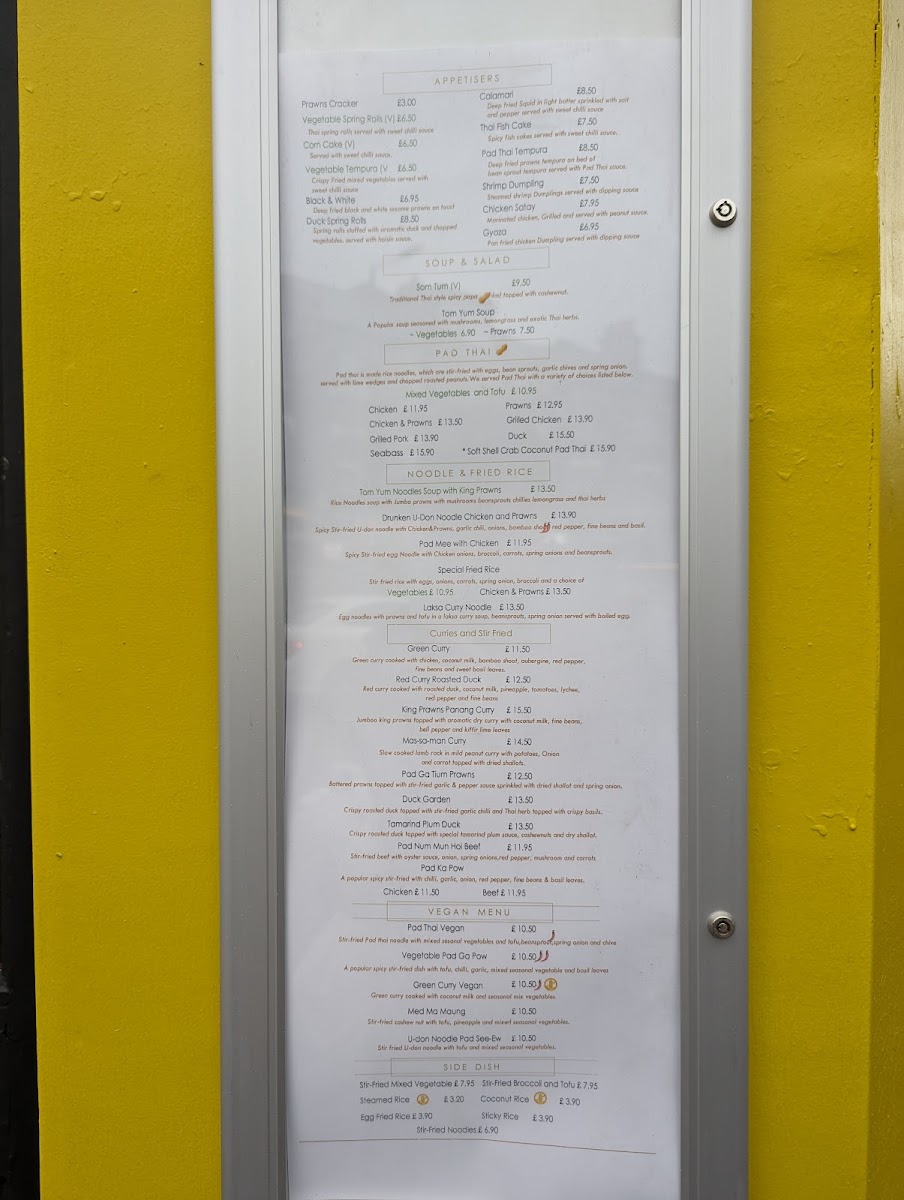 APPETISERS
Prawns Cracker £3.00
Vegetable Spring Rolls (V) £6.50
Thai spring rolls served with sweet chilli sauce
Corn Cake (V) £6.50
Served with sweet chilli sauce.
Vegetable Tempura (V £6.50
Crispy Fried mixed vegetables served with
sweet chilli sauce
Black & White £6.95
Deep fried black and white sesame prawns on toast
Duck Spring Rolls £8.50
Spring rolls stuffed with aromatic duck and chopped
vegetables. served with hoisin sauce.
Calamari £8.50
Deep fried Squid in light batter sprinkled with salt
and pepper served with sweet chilli sauce
Thai Fish Cake £7.50
Spicy fish cakes served with sweet chilli sauce.
Pad Thai Tempura £8.50
Deep fried prawns tempura on bed of
bean sprout tempura served with Pad Thai sauce.
Shrimp Dumpling £7.50
Steamed shrimp Dumplings served with dipping sauce
Chicken Satay £7.95
Marinated chicken, Grilled and served with peanut sauce.
Gyoza £6.95
Pan fried chicken Dumpling served with dipping sauce
SOUP & SALAD
Som Tum (V) £9.50
Traditional Thai style spicy papa topped with cashewnut.
Tom Yum Soup
A Popular soup seasoned with mushrooms, lemongrass and exotic Thai herbs.
~ Vegetables 6.90 ~ Prawns 7.50
PAD THAI
Pad thai is made rice noodles, which are stir-fried with eggs, bean sprouts, garlic chives and spring onion.
served with lime wedges and chopped roasted peanuts. We served Pad Thai with a variety of choices listed below.
Mixed Vegetables and Tofu £ 10.95
Chicken £ 11.95 Prawns £ 12.95
Chicken & Prawns £ 13.50 Grilled Chicken £ 13.90
Grilled Pork £ 13.90 Duck £ 15.50
Seabass £ 15.90 * Soft Shell Crab Coconut Pad Thai £ 15.90
NOODLE & FRIED RICE
Tom Yum Noodles Soup with King Prawns £ 13.50
Rice Noodles soup with Jumbo prawns with mushrooms beansprouts chillies lemongrass and thai herbs
Drunken U-Don Noodle Chicken and Prawns £ 13.90
Spicy Stir-fried U-don noodle with Chicken&Prawns, garlic chili, onions, bamboo shoot red pepper, fine beans and basil.
Pad Mee with Chicken £ 11.95
Spicy Stir-fried egg Noodle with Chicken onions, broccoli, carrots, spring onions and beansprouts.
Special Fried Rice
Stir fried rice with eggs, onions, carrots, spring onion, broccoli and a choice of
Vegetables £ 10.95 Chicken & Prawns £ 13.50
Laksa Curry Noodle £ 13.50
Egg noodles with prawns and tofu in a laksa curry soup, beansprouts, spring onion served with boiled egg.
Curries and Stir Fried
Green Curry £ 11.50
Green curry cooked with chicken, coconut milk, bamboo shoot, aubergine, red pepper,
fine beans and sweet basil leaves.
Red Curry Roasted Duck £ 12.50
Red curry cooked with roasted duck, coconut milk, pineapple, tomatoes, lychee,
red pepper and fine beans
King Prawns Panang Curry £ 15.50
Jumboo king prawns topped with aromatic dry curry with coconut milk, fine beans,
bell pepper and kiffir lime leaves
Mas-sa-man Curry £ 14.50
Slow cooked lamb rack in mild peanut curry with potatoes, Onion
and carrot topped with dried shallots.
Pad Ga Tium Prawns £ 12.50
Battered prawns topped with stir-fried garlic & pepper sauce sprinkled with dried shallot and spring onion.
Duck Garden £ 13.50
Crispy roasted duck topped with stir-fried garlic chilli and Thai herb topped with crispy basils.
Tamarind Plum Duck £ 13.50
Crispy roasted duck topped with special tamarind plum sauce, cashewnuts and dry shallot.
Pad Num Mun Hoi Beef £ 11.95
Stir-fried beef with oyster sauce, onion, spring onions,red pepper, mushroom and carrots
Pad Ka Pow
A popular spicy stir-fried with chilli, garlic, onion, red pepper, fine beans & basil leaves.
Chicken £ 11.50 Beef £ 11.95
VEGAN MENU
Pad Thai Vegan £ 10.50
Stir-fried Pad thai noodle with mixed sesonal vegetables and tofu,beansprout,spring onion and chive
Vegetable Pad Ga Pow £ 10.50
A popular spicy stir-fried dish with tofu, chilli, garlic, mixed seasonal vegetable and basil leaves
Green Curry Vegan £ 10.50
Green curry cooked with coconut milk and seasonal mix vegetables.
Med Ma Maung £ 10.50
Stir-fried cashew nut with tofu, pineapple and mixed seasonal vegetables.
U-don Noodle Pad See-Ew £ 10.50
Stir fried U-don noodle with tofu and mixed seasonal vegetables.
SIDE DISH
Stir-Fried Mixed Vegetable £ 7.95 Stir-Fried Broccoli and Tofu £ 7.95
Steamed Rice £ 3.20 Coconut Rice £ 3.90
Egg Fried Rice £ 3.90 Sticky Rice £ 3.90
Stir-Fried Noodles £ 6.90